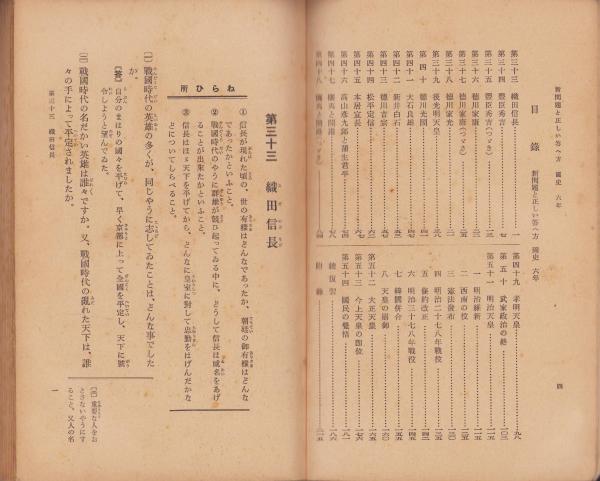 新問題と正しい答へ方 國史 六年
目錄 新問題と正しい答へ方 國史 六年
第三十三 織田信長……一
第三十四 豐臣秀吉……七
第三十五 豐臣秀吉(つゞき)
第三十六 德川家康
第三十七 德川家康(つゞき)
第三十八 德川家光
第三十九 後光明天皇
第四十 德川光圀
第四十一 大石良雄
第四十二 新井白石
第四十三 德川吉宗
第四十四 松平定信
第四十五 本居宣長
第四十六 高山彦九郎と蒲生君平
第四十七 攘夷と開港
第四十八 攘夷と開港(つゞき)
第四十九 孝明天皇……九八
第五十 武家政治の終……一〇三
第五十一 明治天皇……一一五
一 明治維新……一一五
二 西南の役
三 憲法發布……一三〇
四 明治二十七八年戰役
五 條約改正
六 明治三十七八年戰役
七 韓國併合……一五五
八 天皇の崩御……一六〇
第五十二 大正天皇……一六五
第五十三 今上天皇の卽位
第五十四 國民の覺悟
總復習
附錄
四
第三十三 織田信長
ねらひ所
① 信長が現れた頃の、世の有樣はどんなであつたか、朝廷の御有樣はどんな
であつたかといふこと。
② 戰國時代のやうに群雄が競ひ起つてゐる中に、どうして信長は威名をあげ
ることが出來たかといふこと。
③ 信長はほゞ天下を平げてから、どんなに皇室に對して忠勤をはげんだかな
どについてしらべること。
(一) 戰國時代の英雄の多くが、同じやうに志してゐたことは、どんな事でした
か。
【答】 自分のまはりの國々を平げて、早く京都に上つて全國を平定し、天下に號
令しようと望んでゐた。
(二) 戰國時代の名だかい英雄は誰々ですか。又、戰國時代の亂れた天下は、誰
々の手によつて平定されましたか。
重要な人をお
とさないやうにす
ること。又人の名
第三十三 織田信長
一